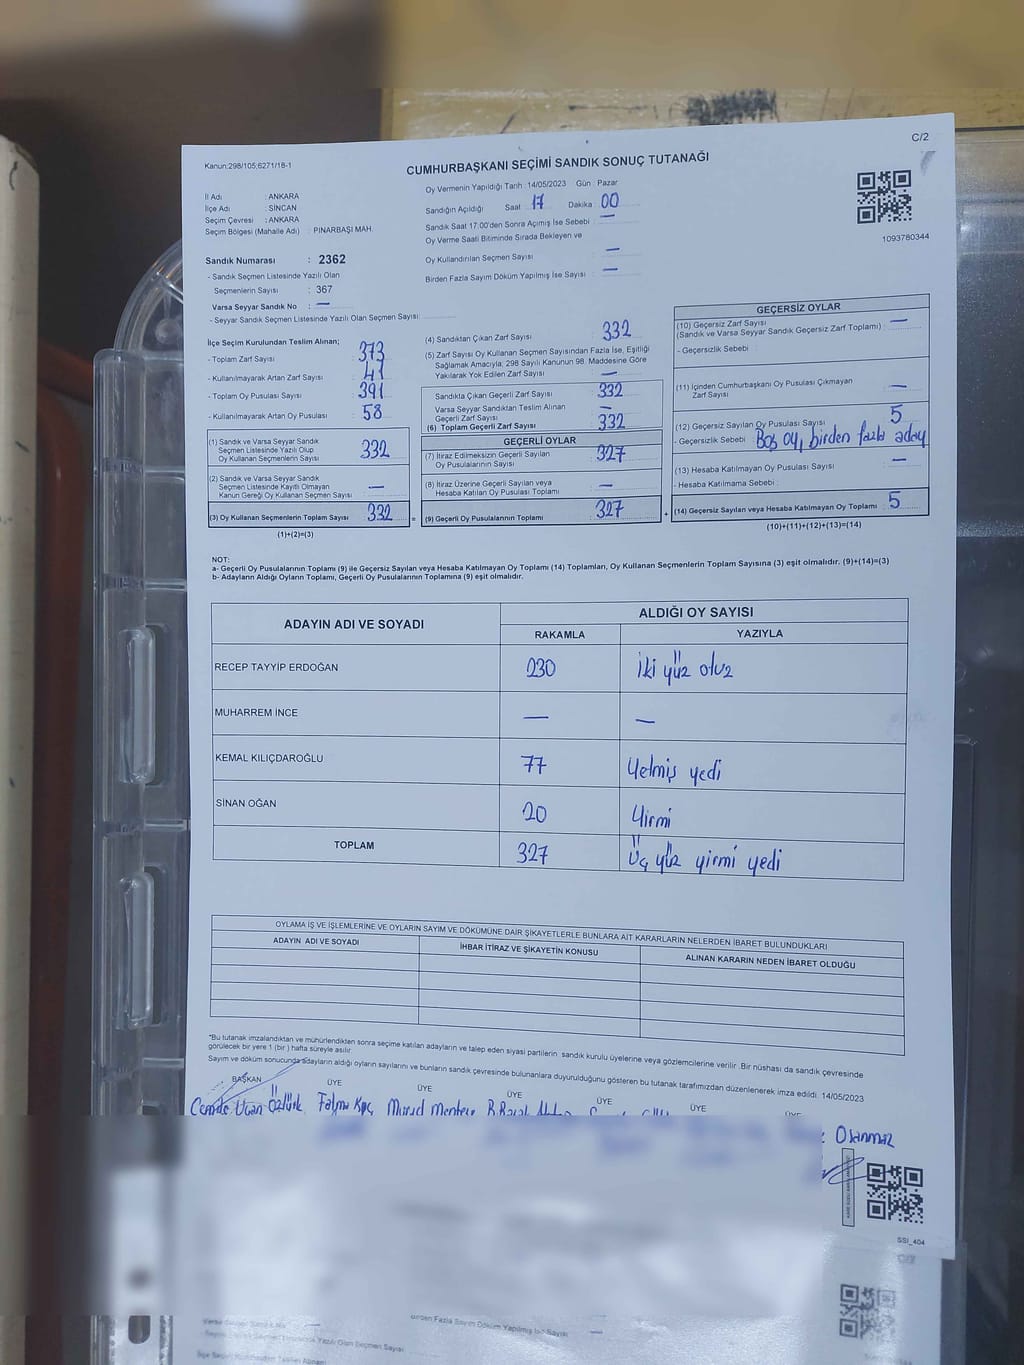 C/2
Kanun:298/105;6271/18-1
CUMHURBAŞKANI SEÇİMİ SANDIK SONUÇ TUTANAĞI
İl Adı : ANKARA
İlçe Adı : SİNCAN
Seçim Çevresi : ANKARA
Seçim Bölgesi (Mahalle Adı) : PINARBAŞI MAH.
Oy Vermenin Yapıldığı Tarih : 14/05/2023 Gün : Pazar
Sandığın Açıldığı Saat : 17 Dakika : 00
Sandık Saat 17:00'den Sonra Açılmış İse Sebebi : —
Oy Verme Saati Bitiminde Sırada Bekleyen ve
Oy Kullandırılan Seçmen Sayısı : —
Birden Fazla Sayım Döküm Yapılmış İse Sayısı : —
1093780344
Sandık Numarası : 2362
- Sandık Seçmen Listesinde Yazılı Olan
Seçmenlerin Sayısı : 367
Varsa Seyyar Sandık No : —
- Seyyar Sandık Seçmen Listesinde Yazılı Olan Seçmen Sayısı:
İlçe Seçim Kurulundan Teslim Alınan;
- Toplam Zarf Sayısı : 373
- Kullanılmayarak Artan Zarf Sayısı : 41
- Toplam Oy Pusulası Sayısı : 391
- Kullanılmayarak Artan Oy Pusulası : 58
(1) Sandık ve Varsa Seyyar Sandık
Seçmen Listesinde Yazılı Olup
Oy Kullanan Seçmenlerin Sayısı : 332
(2) Sandık ve Varsa Seyyar Sandık
Seçmen Listesinde Kayıtlı Olmayan
Kanun Gereği Oy Kullanan Seçmen Sayısı : —
(3) Oy Kullanan Seçmenlerin Toplam Sayısı : 332
(1)+(2)=(3)
(4) Sandıktan Çıkan Zarf Sayısı : 332
(5) Zarf Sayısı Oy Kullanan Seçmen Sayısından Fazla İse, Eşitliği
Sağlamak Amacıyla; 298 Sayılı Kanunun 98. Maddesine Göre
Yakılarak Yok Edilen Zarf Sayısı : —
Sandıkta Çıkan Geçerli Zarf Sayısı : 332
Varsa Seyyar Sandıktan Teslim Alınan
Geçerli Zarf Sayısı : —
(6) Toplam Geçerli Zarf Sayısı : 332
GEÇERLİ OYLAR
(7) İtiraz Edilmeksizin Geçerli Sayılan
Oy Pusulalarının Sayısı : 327
(8) İtiraz Üzerine Geçerli Sayılan veya
Hesaba Katılan Oy Pusulası Toplamı : —
= (9) Geçerli Oy Pusulalarının Toplamı : 327
GEÇERSİZ OYLAR
(10) Geçersiz Zarf Sayısı
(Sandık ve Varsa Seyyar Sandık Geçersiz Zarf Toplamı) : —
- Geçersizlik Sebebi :
(11) İçinden Cumhurbaşkanı Oy Pusulası Çıkmayan
Zarf Sayısı : —
(12) Geçersiz Sayılan Oy Pusulası Sayısı : 5
- Geçersizlik Sebebi : Boş oy, birden fazla aday
(13) Hesaba Katılmayan Oy Pusulası Sayısı : —
- Hesaba Katılmama Sebebi :
+ (14) Geçersiz Sayılan veya Hesaba Katılmayan Oy Toplamı : 5
(10)+(11)+(12)+(13)=(14)
NOT:
a- Geçerli Oy Pusulalarının Toplamı (9) ile Geçersiz Sayılan veya Hesaba Katılmayan Oy Toplamı (14) Toplamları, Oy Kullanan Seçmenlerin Toplam Sayısına (3) eşit olmalıdır. (9)+(14)=(3)
b- Adayların Aldığı Oyların Toplamı, Geçerli Oy Pusulalarının Toplamına (9) eşit olmalıdır.
ADAYIN ADI VE SOYADI ALDIĞI OY SAYISI
RAKAMLA YAZIYLA
RECEP TAYYİP ERDOĞAN 230 İki yüz otuz
MUHARREM İNCE — —
KEMAL KILIÇDAROĞLU 77 Yetmiş yedi
SİNAN OĞAN 20 Yirmi
TOPLAM 327 Üç yüz yirmi yedi
OYLAMA İŞ VE İŞLEMLERİNE VE OYLARIN SAYIM VE DÖKÜMÜNE DAİR ŞİKAYETLERLE BUNLARA AİT KARARLARIN NELERDEN İBARET BULUNDUKLARI
ADAYIN ADI VE SOYADI İHBAR İTİRAZ VE ŞİKAYETİN KONUSU ALINAN KARARIN NEDEN İBARET OLDUĞU
*Bu tutanak imzalandıktan ve mühürlendikten sonra seçime katılan adayların ve talep eden siyasi partilerin sandık kurulu üyelerine veya gözlemcilerine verilir .Bir nüshası da sandık çevresinde
görülecek bir yere 1 (bir ) hafta süreyle asılır.
Sayım ve döküm sonucunda adayların aldığı oyların sayılarını ve bunların sandık çevresinde bulunanlara duyurulduğunu gösteren bu tutanak tarafımızdan düzenlenerek imza edildi. 14/05/2023
BAŞKAN ÜYE ÜYE ÜYE ÜYE ÜYE ÜYE
Öztürk Fatma Murad
Osanmaz
SSI_404
C/2
Birden Fazla Sayım Döküm Yapılmış İse Sayısı —
Varsa Seyyar Sandık No —
- Seyyar Sandık Seçmen Listesinde Yazılı Olan Seçmen Sayısı:
İlçe Seçim Kurulundan Teslim Alınan;